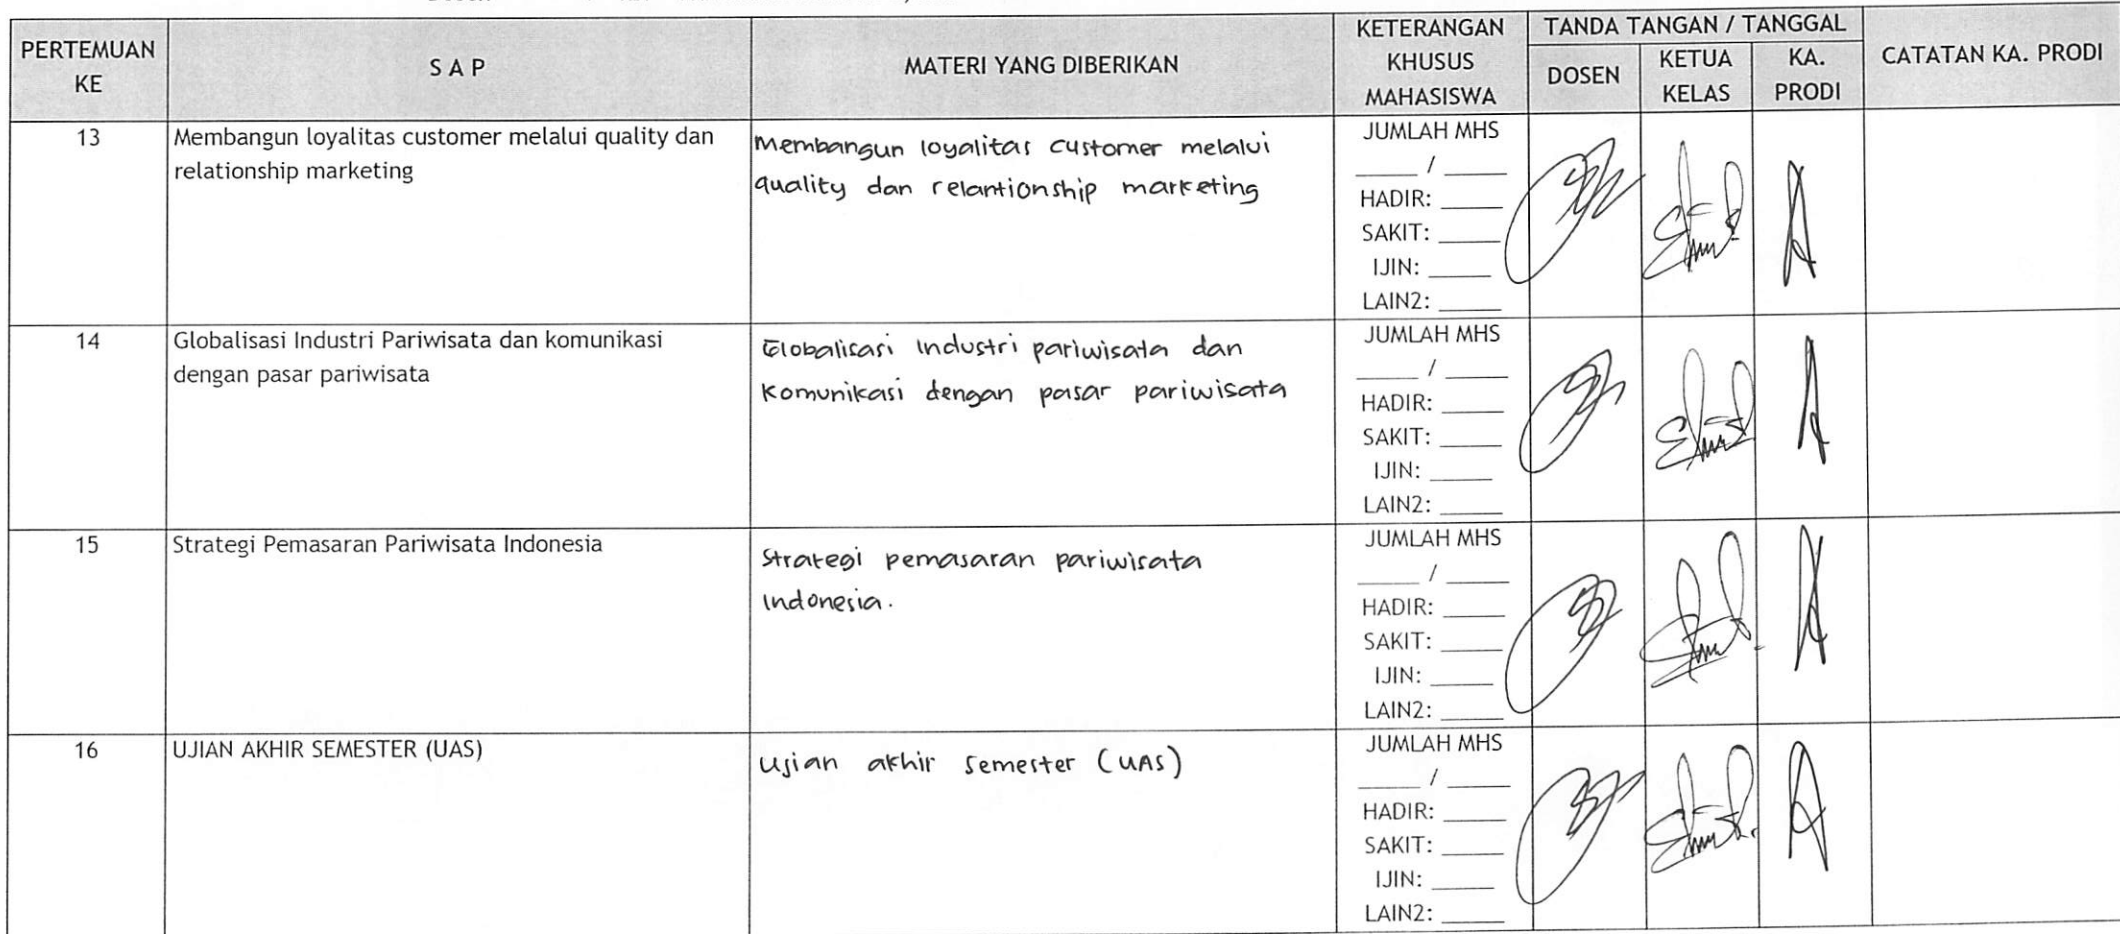 PERTEMUAN KE
S A P
MATERI YANG DIBERIKAN
KETERANGAN KHUSUS MAHASISWA
TANDA TANGAN / TANGGAL
DOSEN
KETUA KELAS
KA. PRODI
CATATAN KA. PRODI
13
Membangun loyalitas customer melalui quality dan
relationship marketing
Membangun loyalitas customer melalui
quality dan relantionship marketing
JUMLAH MHS
_____ / _____
HADIR: _____
SAKIT: _____
IJIN: _____
LAIN2: _____
14
Globalisasi Industri Pariwisata dan komunikasi
dengan pasar pariwisata
Globalisasi Industri pariwisata dan
Komunikasi dengan pasar pariwisata
JUMLAH MHS
_____ / _____
HADIR: _____
SAKIT: _____
IJIN: _____
LAIN2: _____
15
Strategi Pemasaran Pariwisata Indonesia
Strategi pemasaran pariwisata
Indonesia.
JUMLAH MHS
_____ / _____
HADIR: _____
SAKIT: _____
IJIN: _____
LAIN2: _____
16
UJIAN AKHIR SEMESTER (UAS)
Ujian akhir semester (UAS)
JUMLAH MHS
_____ / _____
HADIR: _____
SAKIT: _____
IJIN: _____
LAIN2: _____